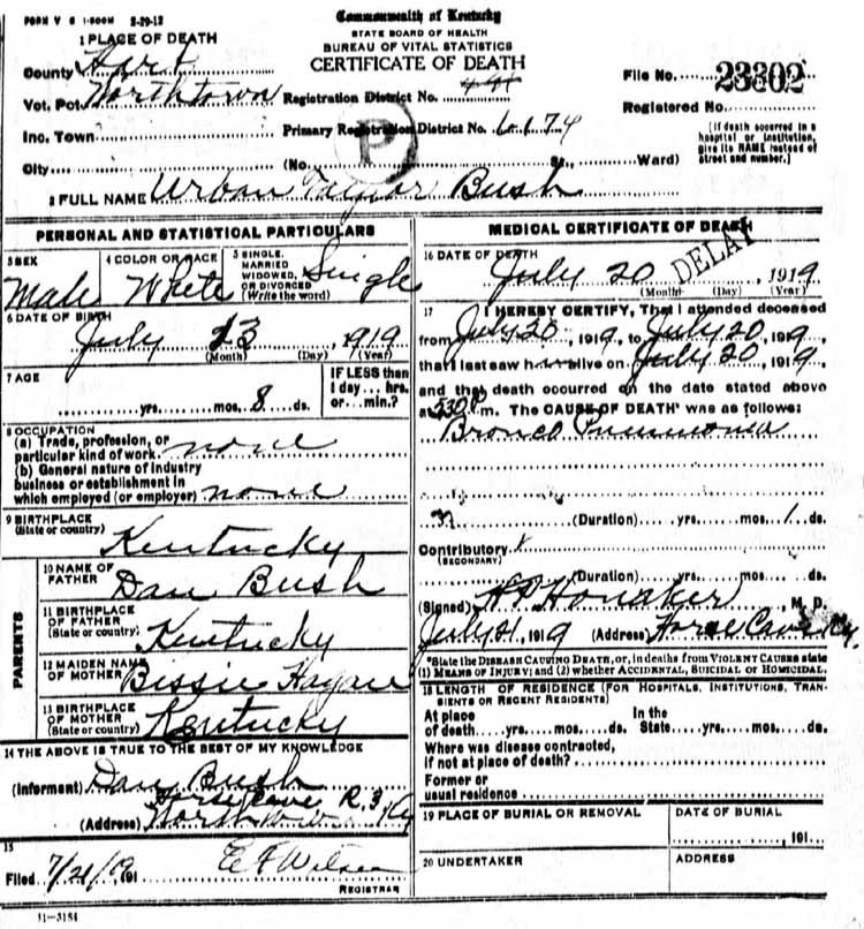 FORM V S 1-500M 5-29-12
Commonwealth of Kentucky
STATE BOARD OF HEALTH
BUREAU OF VITAL STATISTICS
CERTIFICATE OF DEATH
1 PLACE OF DEATH
County Hart
Vot. Pct. Northtown
Inc. Town
City
Registration District No.
Primary Registration District No. 6174
(No. St., Ward)
P
File No. 23302
Registered No.
(If death occurred in a hospital or institution, give its NAME instead of street and number.)
2 FULL NAME Urban Taylor Bush
PERSONAL AND STATISTICAL PARTICULARS
3 SEX
Male
4 COLOR OR RACE
White
5 SINGLE, MARRIED WIDOWED, OR DIVORCED (Write the word)
Single
6 DATE OF BIRTH
July 13, 1919
(Month) (Day) (Year)
7 AGE
yrs. mos. 8 ds.
IF LESS than 1 day... hrs. or... min.?
8 OCCUPATION
(a) Trade, profession, or particular kind of work none
(b) General nature of industry business or establishment in which employed (or employer) none
9 BIRTHPLACE (State or country)
Kentucky
PARENTS
10 NAME OF FATHER Dan Bush
11 BIRTHPLACE OF FATHER (State or country) Kentucky
12 MAIDEN NAME OF MOTHER Bessie
13 BIRTHPLACE OF MOTHER (State or country) Kentucky
14 THE ABOVE IS TRUE TO THE BEST OF MY KNOWLEDGE
(Informant) Dan Bush
Horse Cave R. 3
(Address) Ky
15
Filed 7/21/19, 191
E F Wilson
REGISTRAR
11-3184
MEDICAL CERTIFICATE OF DEATH
16 DATE OF DEATH
DELAY
July 20 1919
(Month) (Day) (Year)
17 I HEREBY CERTIFY, That I attended deceased
from July 20, 1919, to July 20, 1919,
that I last saw him alive on July 20, 1919,
and that death occurred on the date stated above
at 530 P m. The CAUSE OF DEATH* was as follows:
Bronco Pneumonia
(Duration) yrs. mos. 1 ds.
Contributory
(SECONDARY)
(Duration) yrs. mos. ds.
(Signed) Honaker, M. D.
July 21, 1919 (Address) Horse Cave Ky.
*State the DISEASE CAUSING DEATH, or, in deaths from VIOLENT CAUSES state
(1) MEANS OF INJURY; and (2) whether ACCIDENTAL, SUICIDAL or HOMICIDAL.
18 LENGTH OF RESIDENCE (FOR HOSPITALS, INSTITUTIONS, TRANSIENTS OR RECENT RESIDENTS)
At place of death yrs. mos. ds. In the State yrs. mos. ds.
Where was disease contracted,
if not at place of death?
Former or
usual residence
19 PLACE OF BURIAL OR REMOVAL
DATE OF BURIAL
191
20 UNDERTAKER
ADDRESS